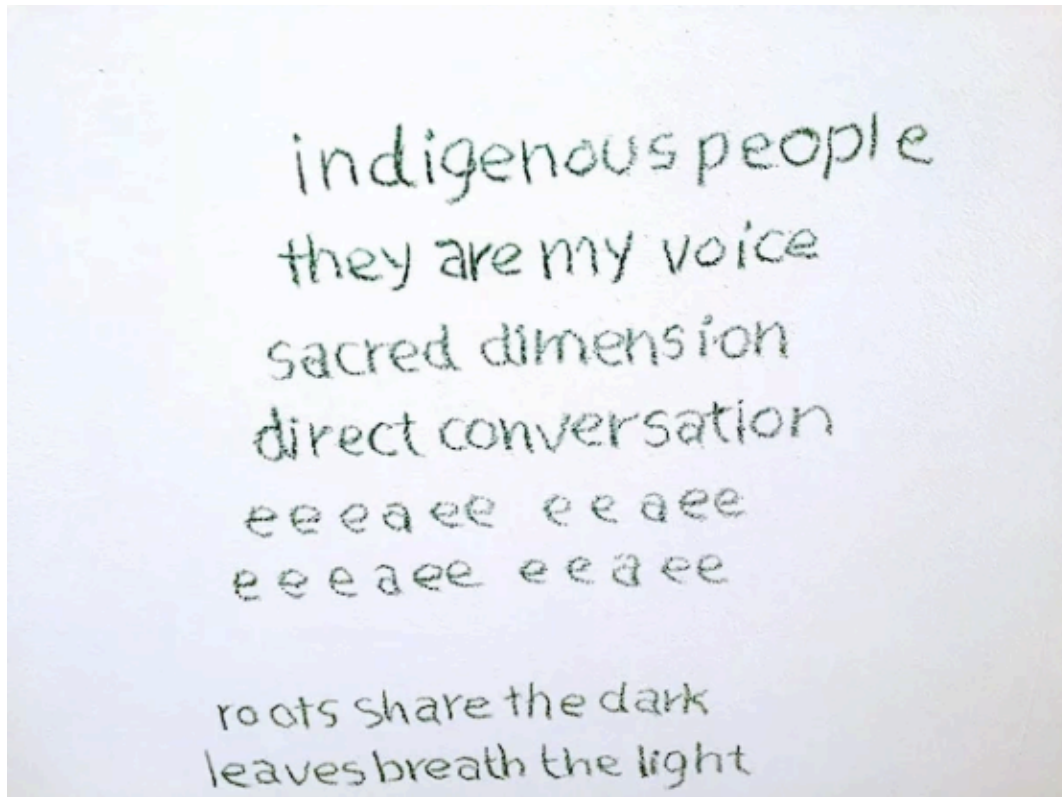 indigenous people
they are my voice
sacred dimension
direct conversation
e e e a e e e e a e e
e e e a e e e e a e e
roots share the dark
leaves breath the light